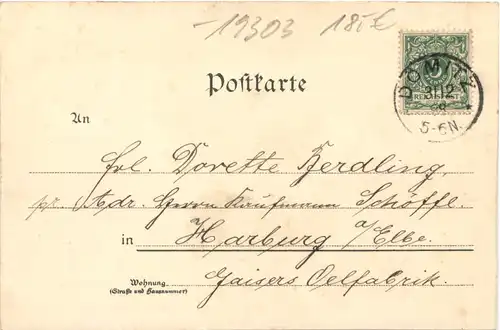 -19303 185€
Postkarte
5
REICHSPOST
DÖMITZ
31 12
98
5-6N.
An
Frl. Dorette Zerdling,
pr. Adr. Herrn Kaufmann Schöffl.
in Harburg a/Elbe.
Wohnung Gaisers Oelfabrik.
(Straße und Hausnummer)